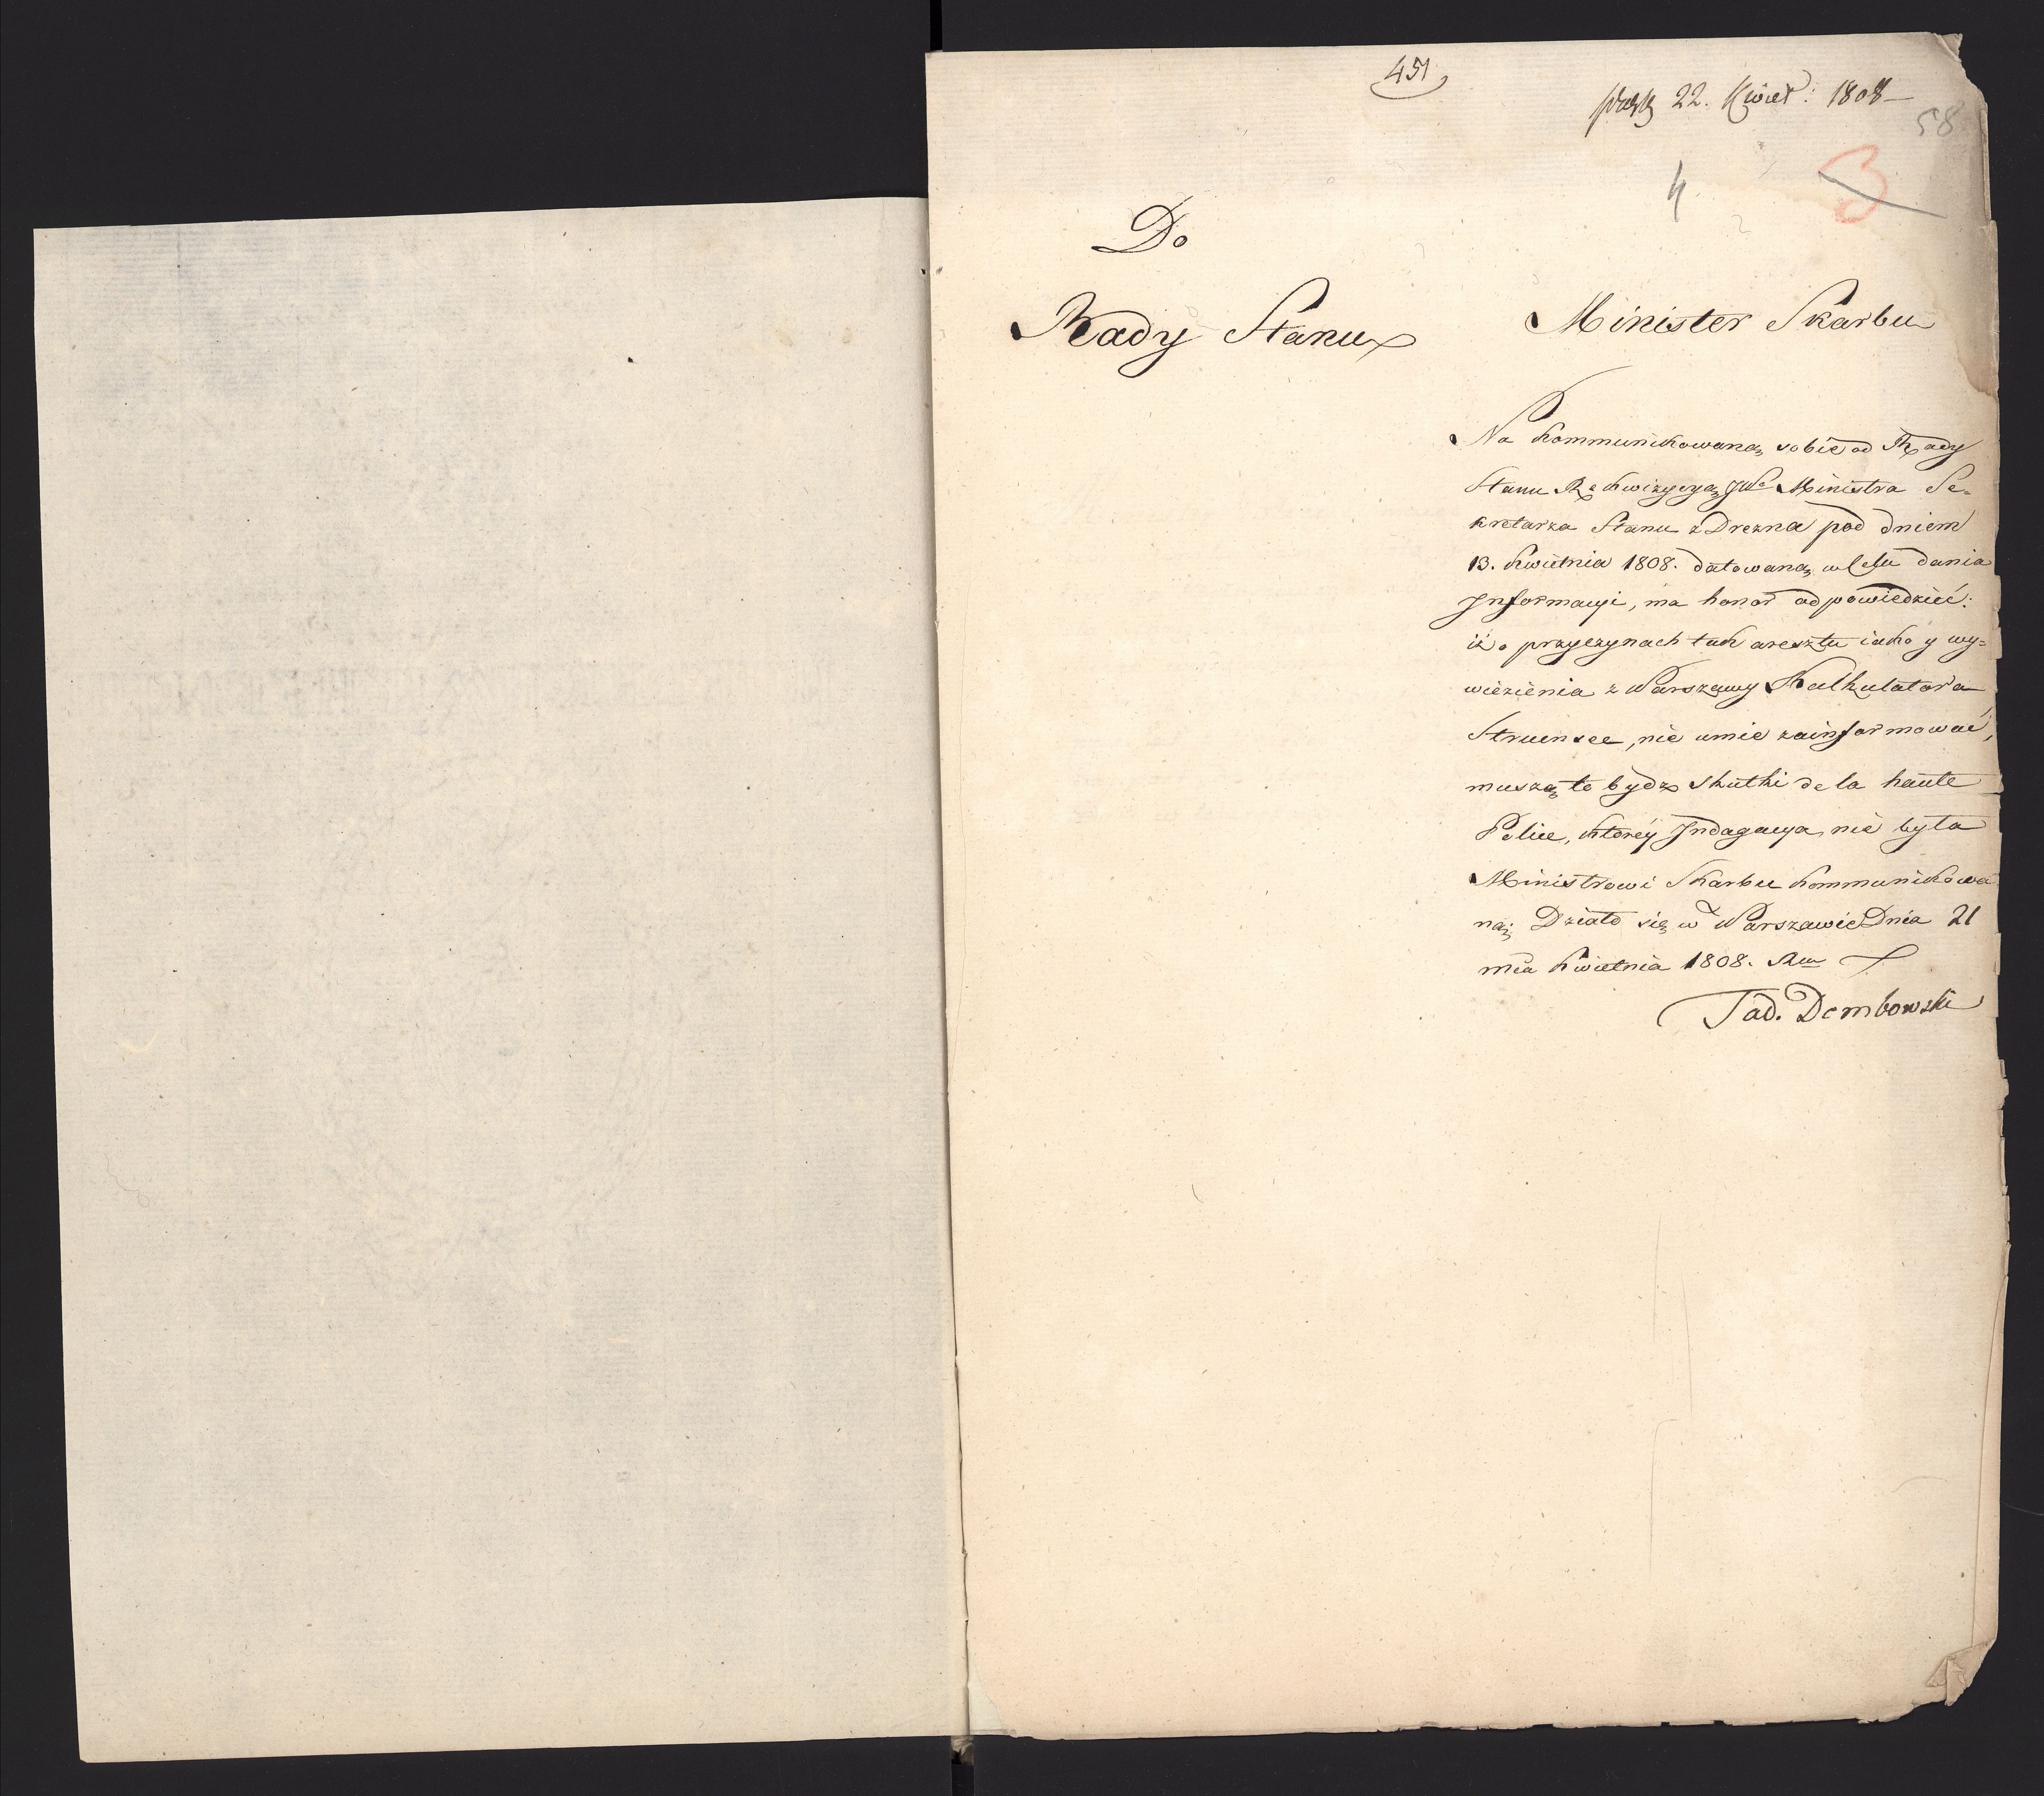 451
22. Kwiet: 1808
58
4
3
Do
Rady Stanu
Minister Skarbu
Na kommunikowaną sobie od Rady
Stanu Rekwizycyą JWo Ministra Se=
kretarza Stanu z Drezna pod dniem
13. Kwietnia 1808. datowaną w Celu dania
Informacyi, ma honor odpowiedzieć:
iż o przyczynach tak aresztu iako y wy=
wiezienia z Warszawy Kalkulatora
Struensee, nie umie zainformować,
muszą to bydź skutki de la haute
Police, ktorey Indagacya nie była
Ministrowi Skarbu kommunikowa
ną. Działo się w Warszawie Dnia 21
mca Kwietnia 1808. Rku
Tad. Dembowski